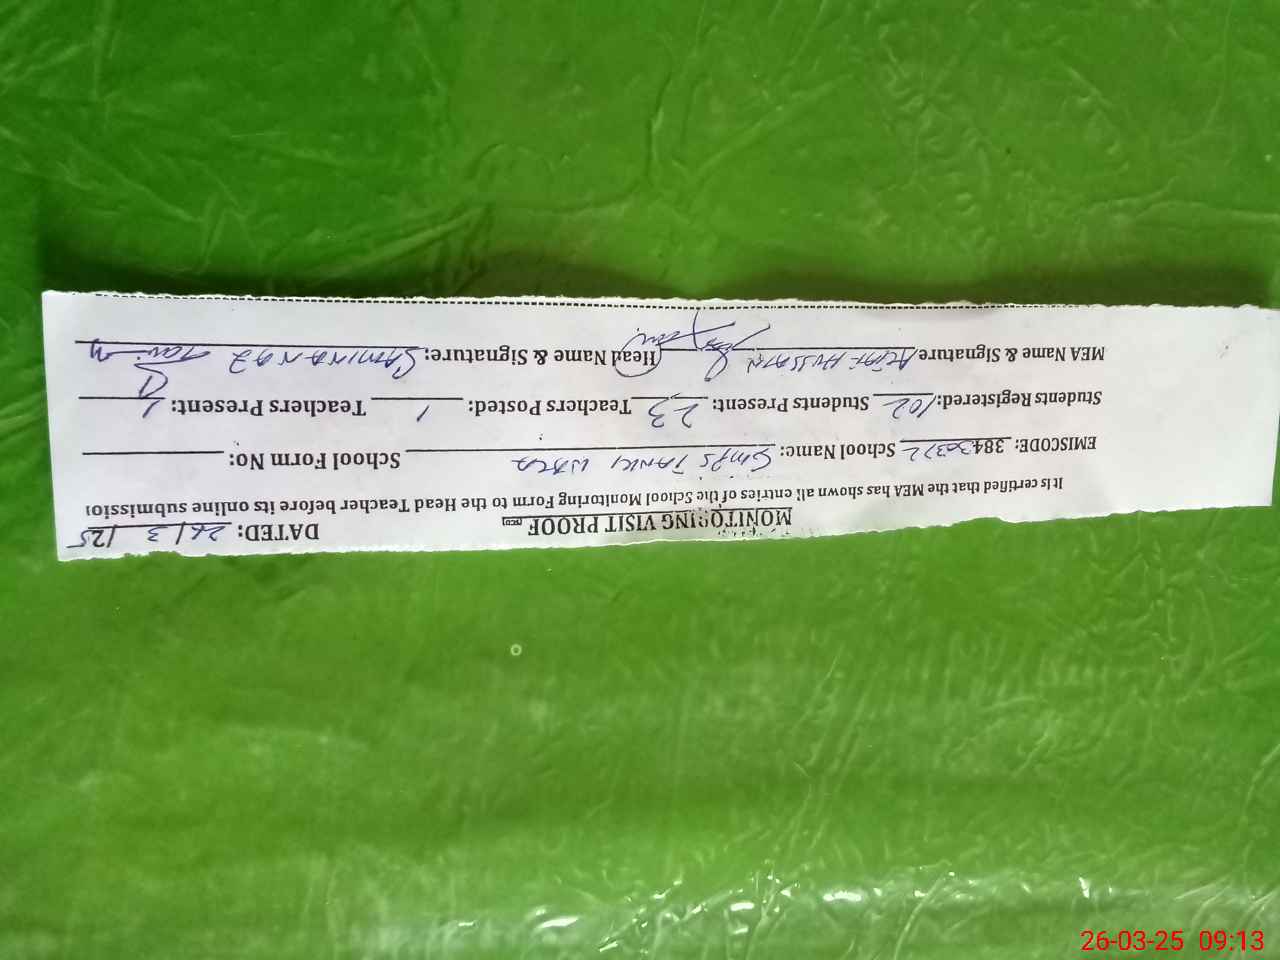 MONITORING VISIT PROOF DATED: 26/3/25
It is certified that the MEA has shown all entries of the School Monitoring Form to the Head Teacher before its online submission
EMISCODE: 38430372 School Name: GMPS TANKI School Form No:
Students Registered: 102 Students Present: 23 Teachers Posted: 1 Teachers Present: 1
MEA Name & Signature HUSSAIN Head Name & Signature: SAMINA NAZ
26-03-25 09:13